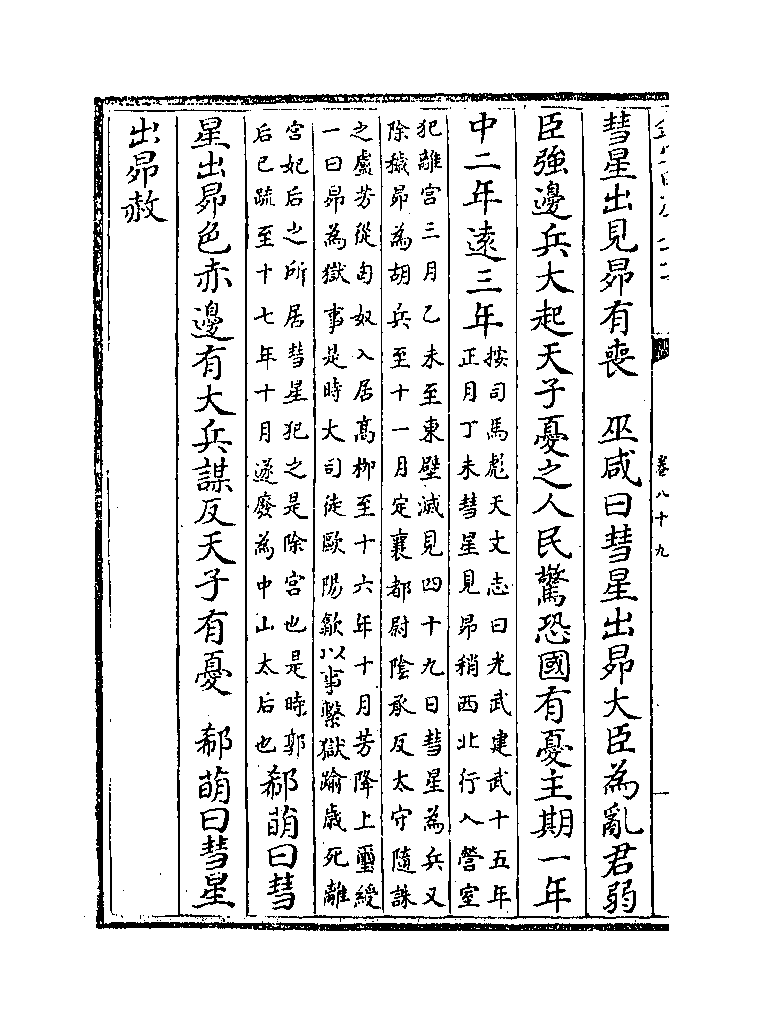 卷八十九
彗星出見昴有喪　巫咸曰彗星出昴大臣為亂君弱
臣強邊兵大起天子憂之人民驚恐國有憂主期一年
中二年遠三年
按司馬彪天文志曰光武建武十五年
正月丁未彗星見昴稍西北行入營室
犯離宮三月乙未至東壁滅見四十九日彗星為兵又
除穢昴為胡兵至十一月定襄都尉陰承反太守隨誅
之盧芳從匈奴入居高柳至十六年十月芳降上璽綬
一曰昴為獄事是時大司徒歐陽歙以事繫獄踰歲死離
宮妃后之所居彗星犯之是除宮也是時郭
后已疏至十七年十月遂廢為中山太后也
郗萌曰彗
星出昴色赤邊有大兵謀反天子有憂　郗萌曰彗星
出昴赦